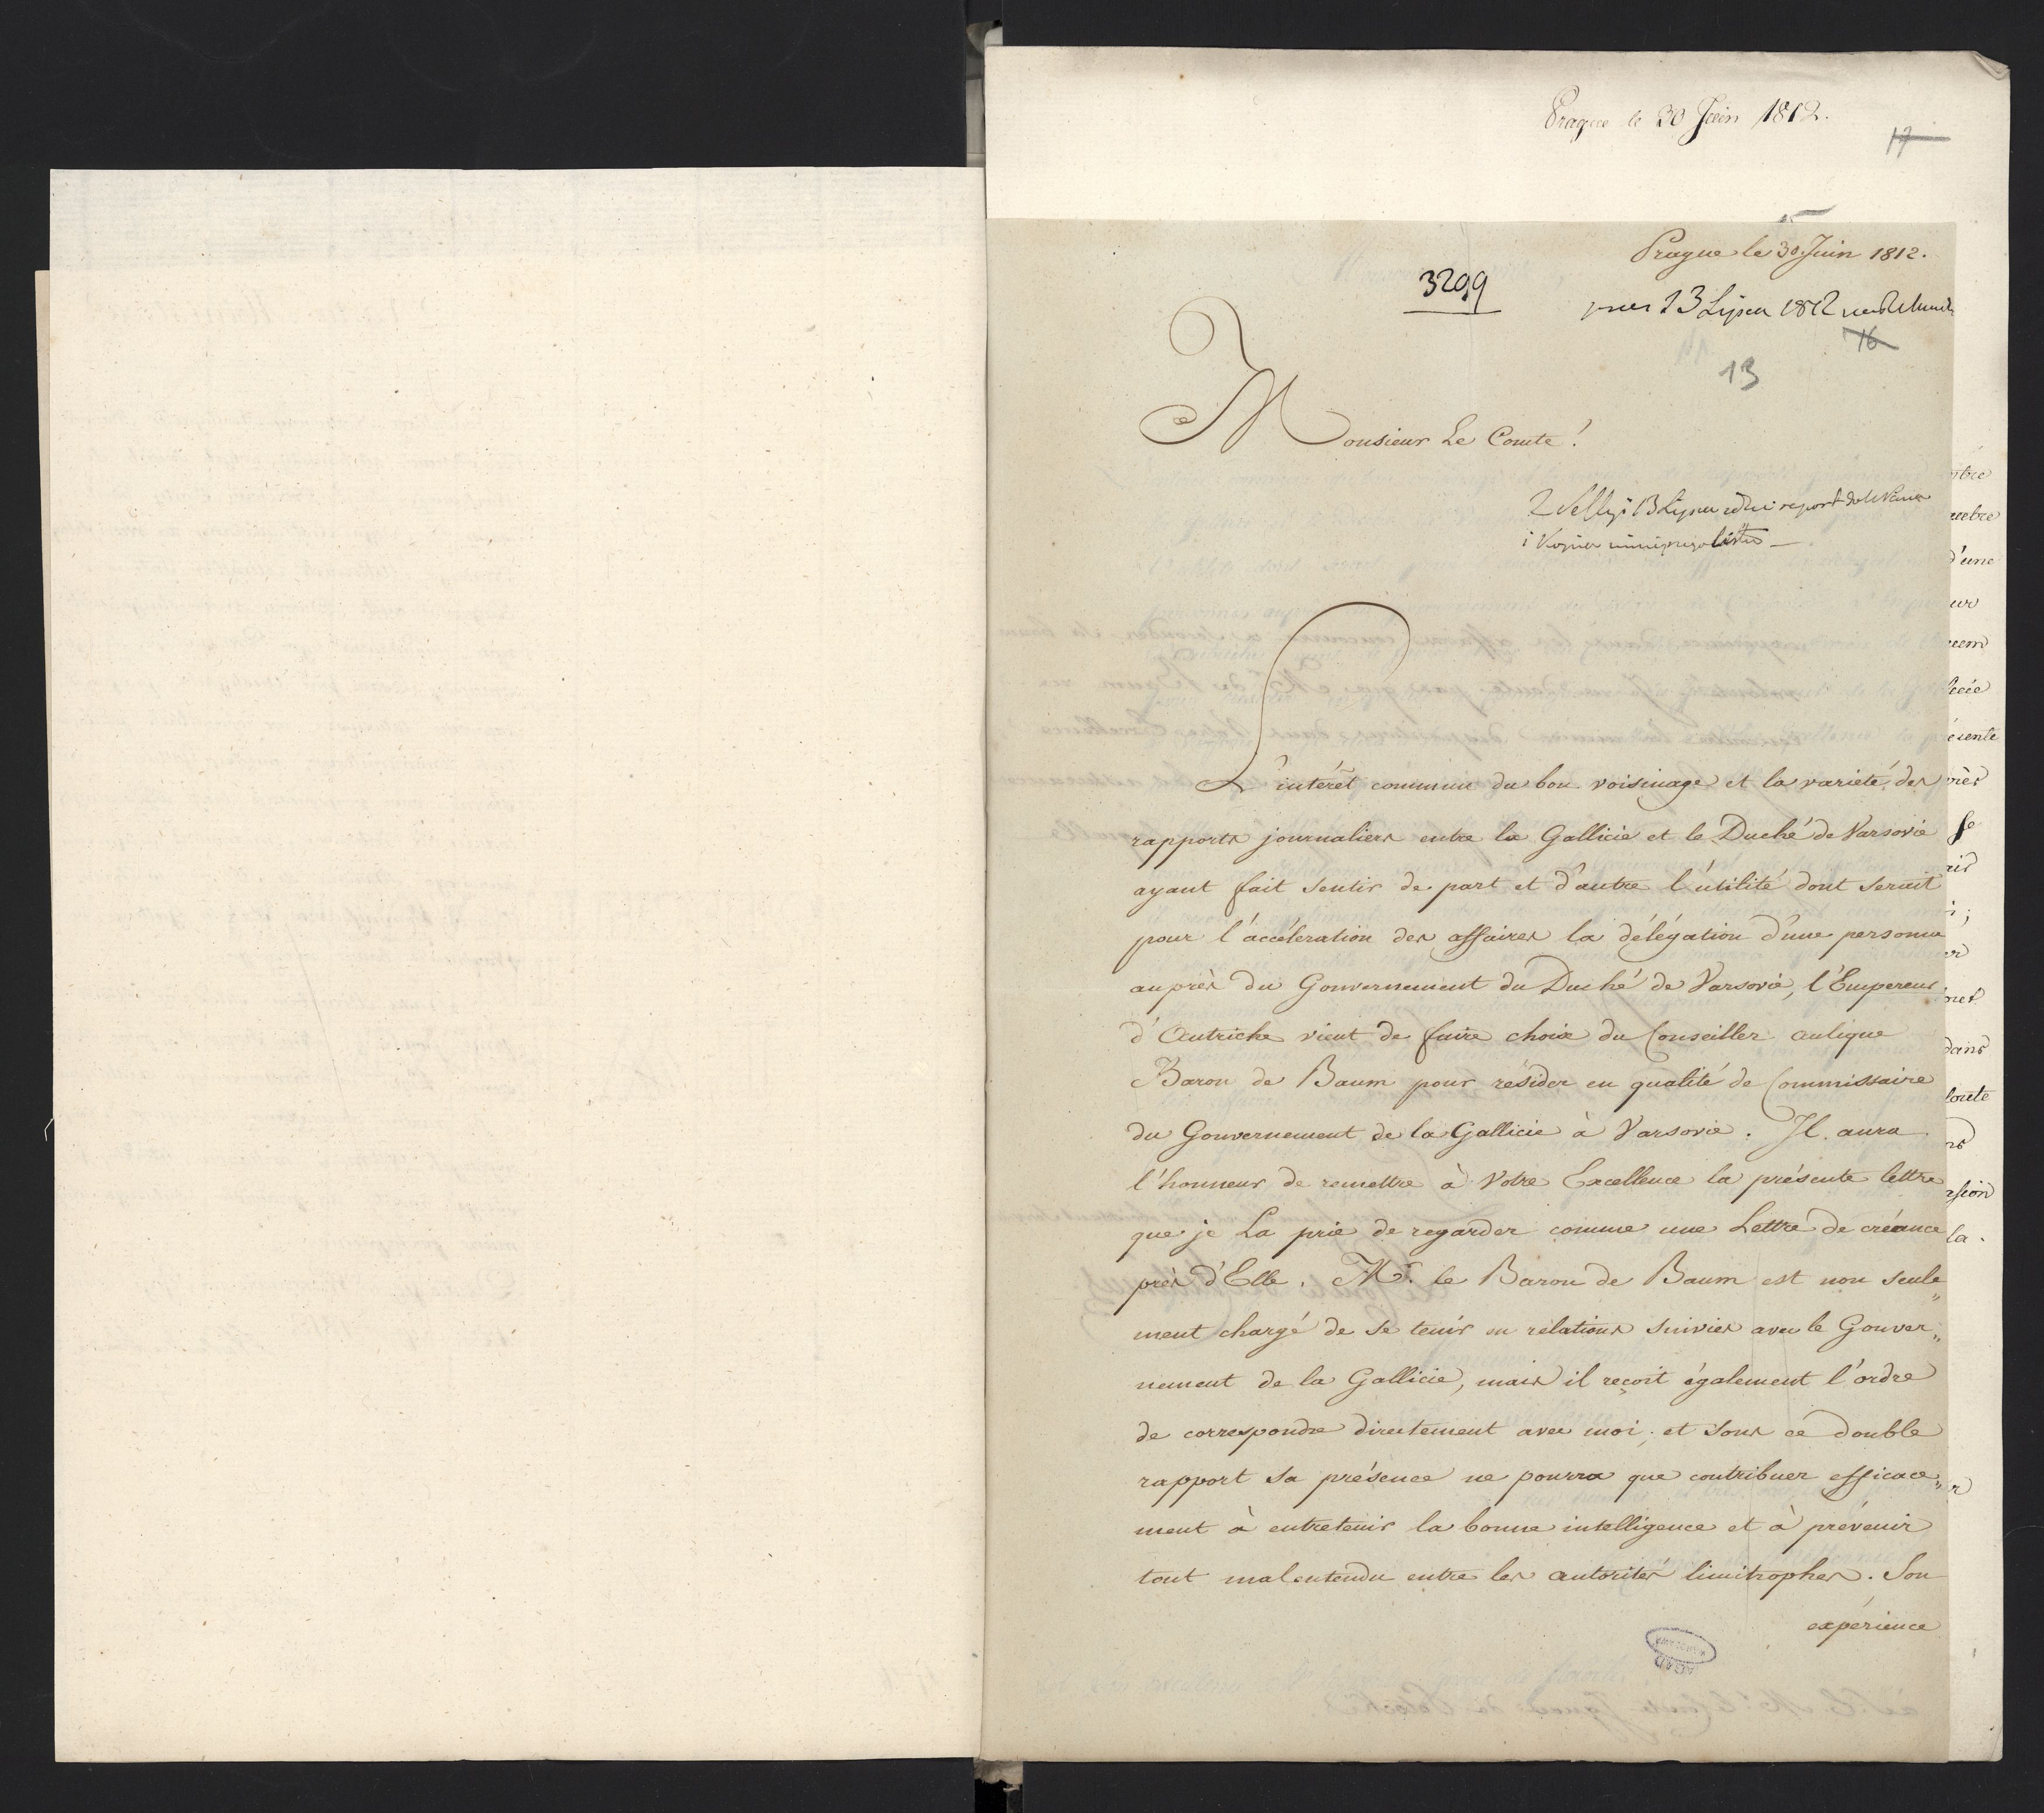 Prague le 30 Juin 1812.
17
Prague le 30. Juin 1812.
3299
13 Lipca 1812
16
13
Monsieur Le Comte!
13 Lipca report
i
L'intérêt commun du bon voisinage et la varieté des
rapports journaliers entre la Gallicie et le Duché de Varsovie
ayant fait sentir de part et d'autre l'utilité dont serait
pour l'accéleration des affaires la délégation d'une personne
auprès du Gouvernement du Duché de Varsovie, l'Empereur
d'Autriche vient de faire choix du Conseiller aulique
Baron de Baum pour résider en qualité de Commissaire
du Gouvernement de la Gallicie à Varsovie. Il aura
l'honneur de remettre à Votre Excellence la présente lettre
que je La prie de regarder comme une Lettre de créance
près d'Elle. Mr. le Baron de Baum est non seule„
ment chargé de se tenir en relations suivies avec le Gouver„
nement de la Gallicie, mais il reçoit également l'ordre
de correspondre directement avec moi, et sous ce double
rapport sa présence ne pourra que contribuer efficace„
ment à entretenir la bonne intelligence et à prévenir
tout malentendu entre les autorités limitrophes. Son
expérience
d'une
ésente
dans
la.